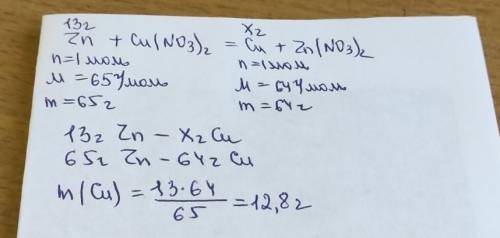 13г x г
Zn + Cu(NO3)2 = Cu + Zn(NO3)2
n=1моль n=1моль
M = 65г/моль M = 64г/моль
m=65г m=64г
13г Zn – x г Cu
65г Zn – 64г Cu
m(Cu) = 13·64 / 65 = 12,8г